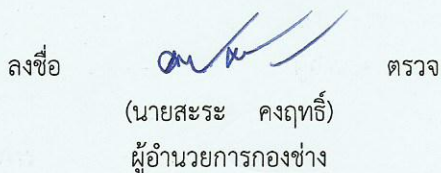 ลงชื่อ ตรวจ
(นายสะระ คงฤทธิ์)
ผู้อำนวยการกองช่าง